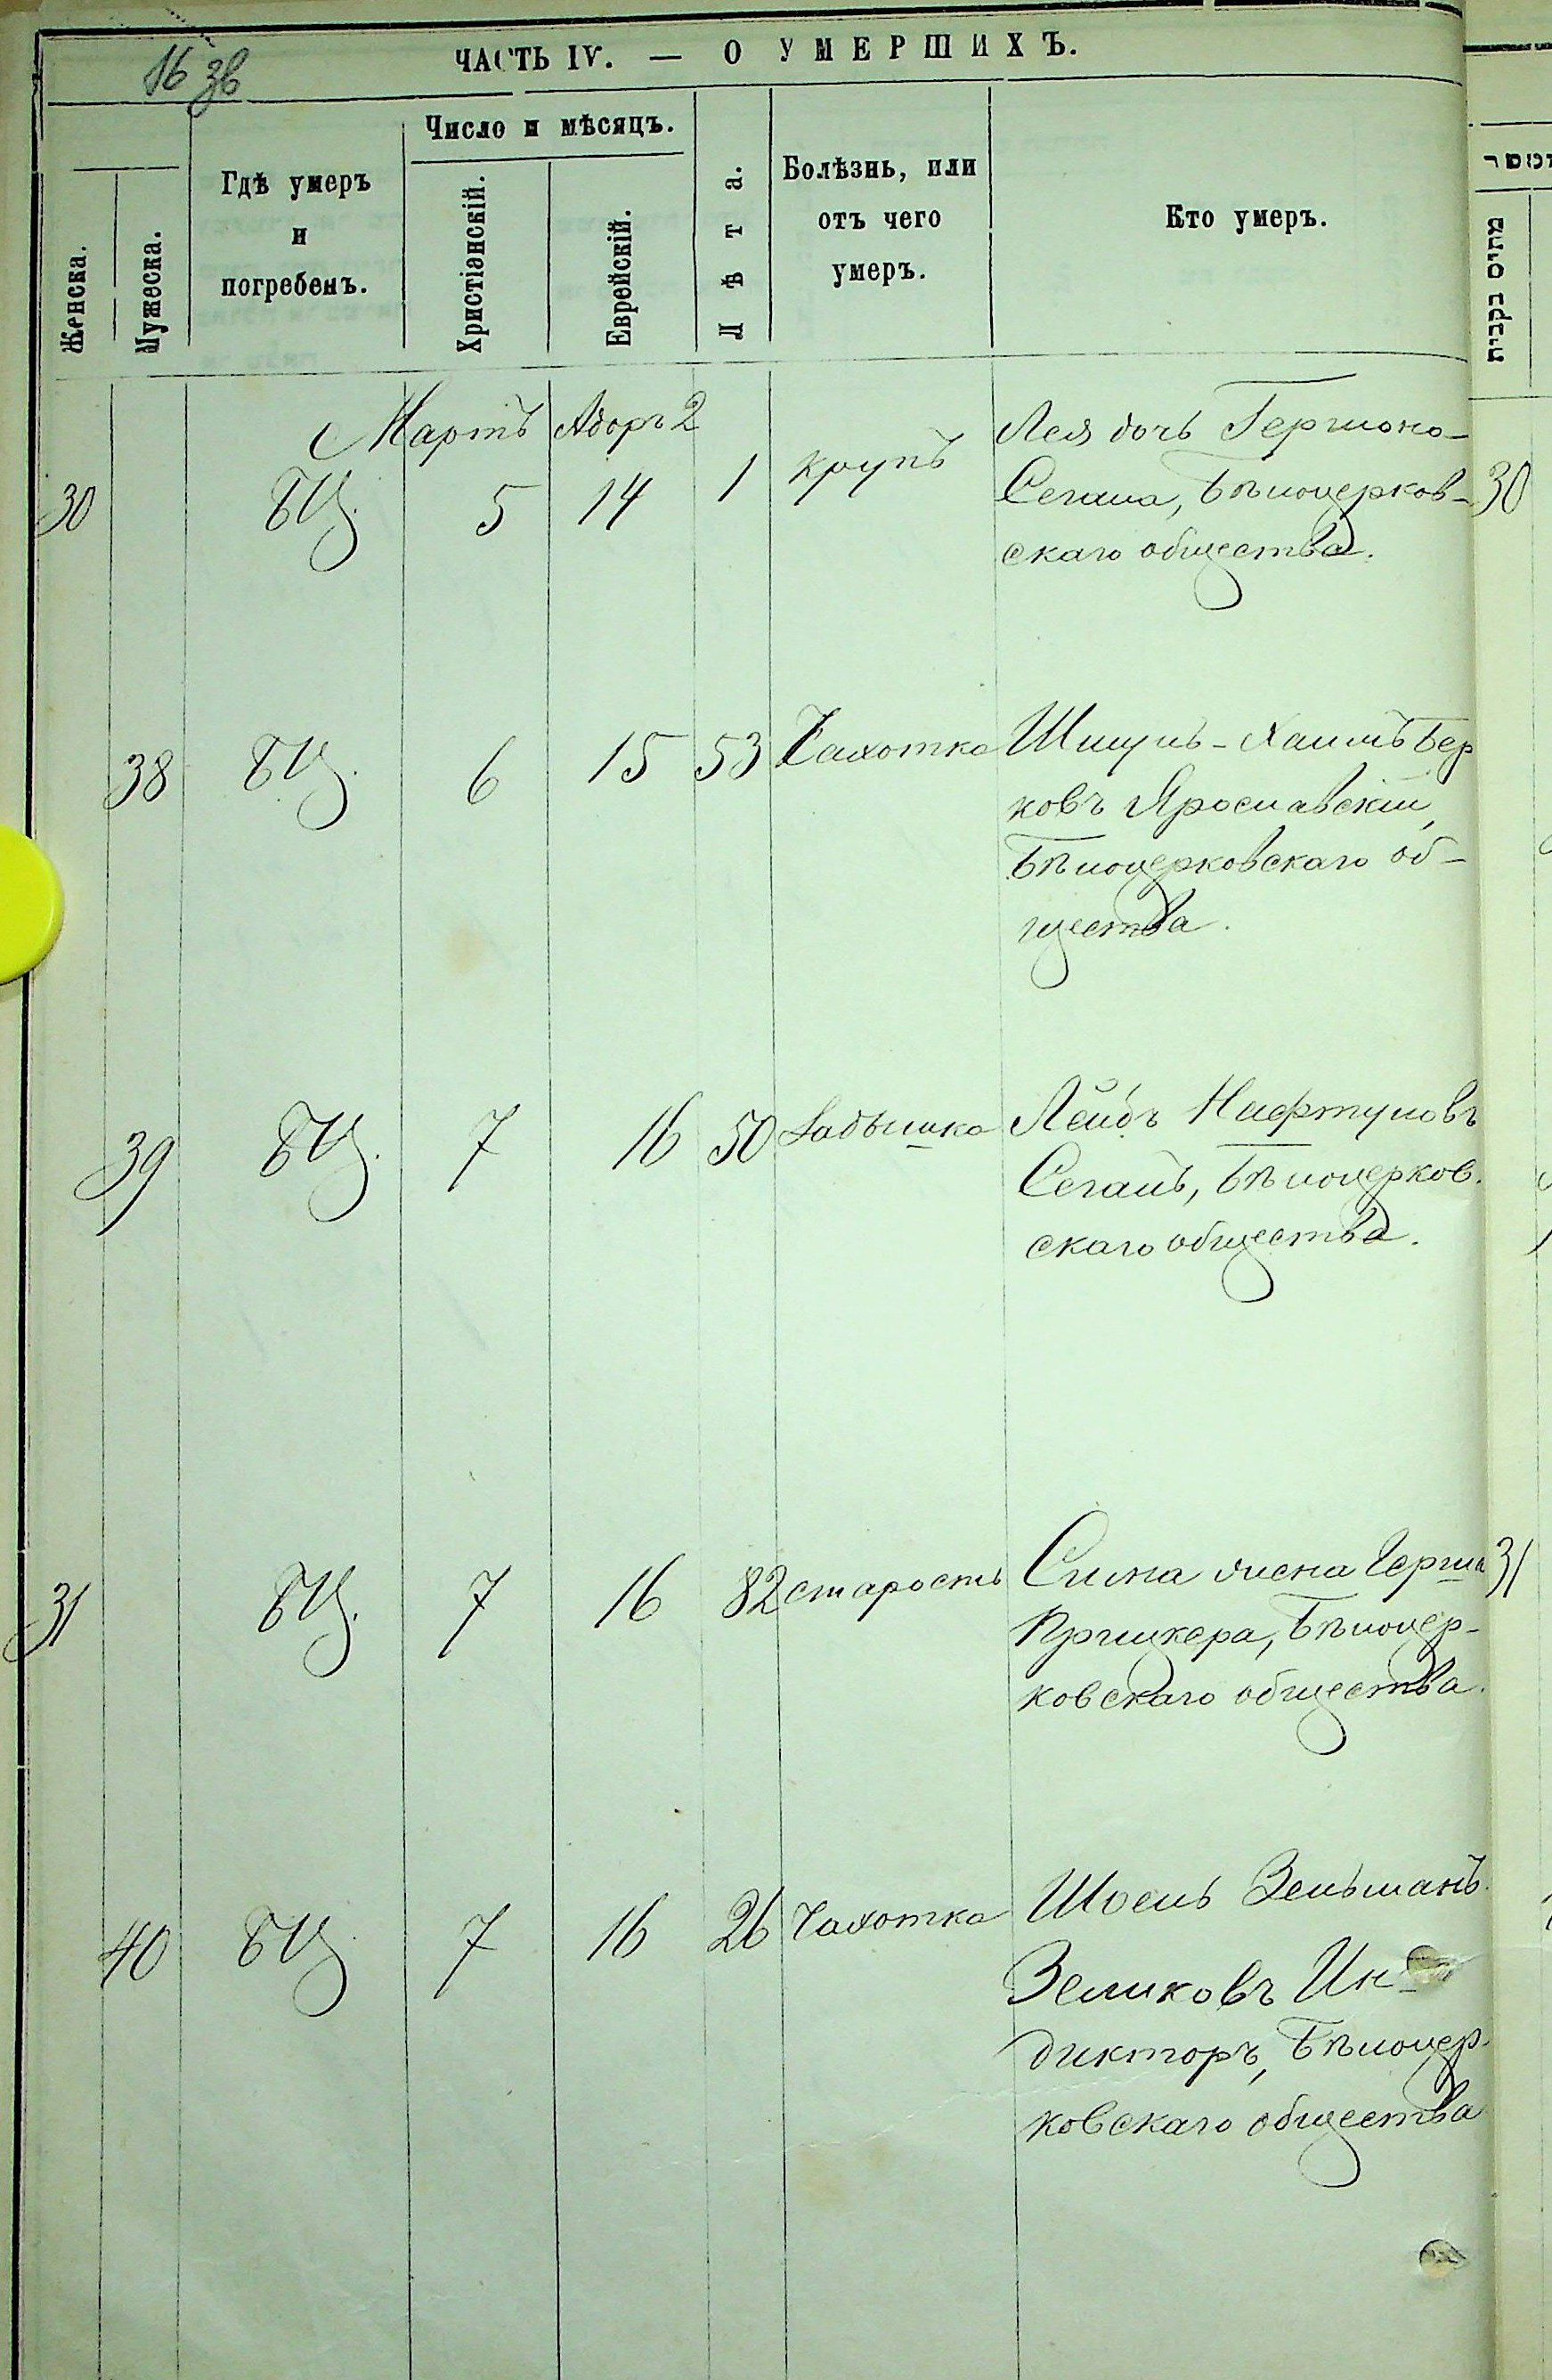 16 зв
ЧАСТЬ IV. — О УМЕРШИХЪ.
Женска.
Мужеска.
Гдѣ умеръ
и
погребенъ.
Число и мѣсяцъ.
Христіанскій.
Еврейскій.
Лѣта.
Болѣзнь, или
отъ чего
умеръ.
Кто умеръ.
מתים בקבית
Мартъ Адаръ 2
30 БЦ. 5 14 1 крупъ
Лея дочь Гершона
Сегала, Бѣлоцерков-
скаго общества.
30
38 БЦ. 6 15 53 Чахотка
Шмуль-Хаимъ Бер
ковъ Ярославскій,
Бѣлоцерковскаго об-
щества.
39 БЦ. 7 16 50 Задышка
Лейбъ Нафтуловъ
Сегалъ, Бѣлоцерков.
скаго общества.
31 БЦ. 7 16 82 старость
Сима жена Герша
Прицкера, Бѣлоцер-
ковскаго общества.
31
40 БЦ. 7 16 26 Чахотка
Шоель Зельманъ
Зеликовъ Ин-
дикторъ, Бѣлоцер-
ковскаго общества